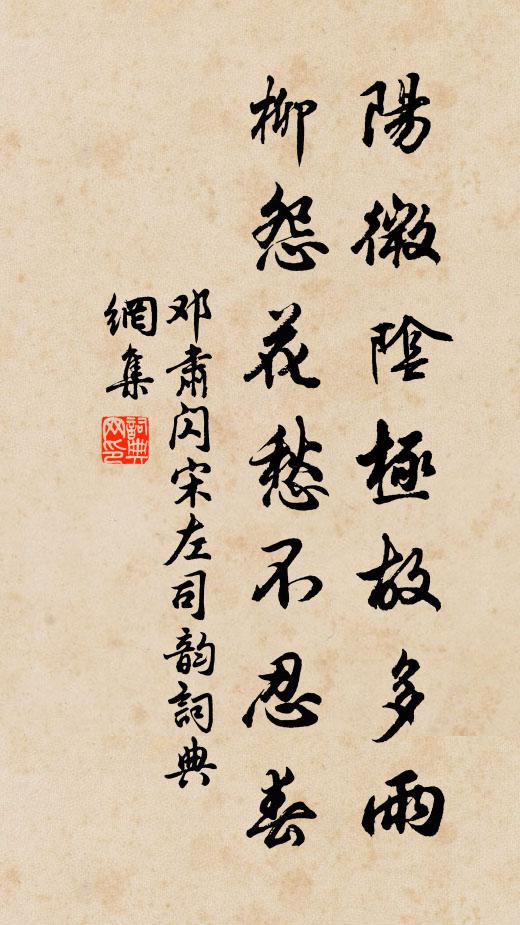 陽微陰極故多雨
柳怨花愁不忍春
邓肅闪宋左司韵詞典
網集
詞典
网印